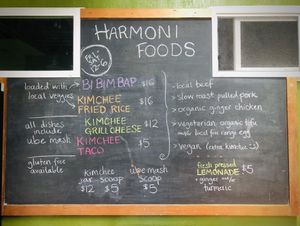 HARMONI
FOODS
FRI-
SAT
12-6
loaded with
local veggies
BIBIMBAP $16
KIMCHEE
FRIED RICE $16
KIMCHEE
GRILLCHEESE $12
KIMCHEE
TACO $5
all dishes
include
ube mash
gluten free
available
- local beef
> slow roast pulled pork
> organic ginger chicken
> vegetarian organic tofu
w/ local free range egg
> vegan (extra kimchee :))
kimchee
jar scoop
$12 $5
ube mash
scoop
$5
fresh pressed
LEMONADE $5
+ ginger and/or
turmeric